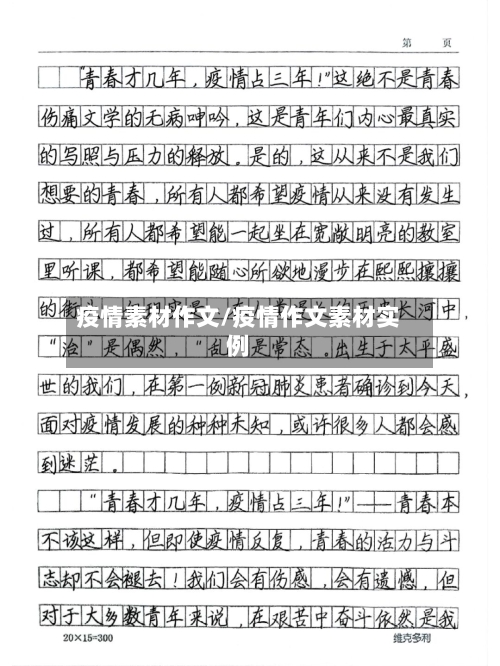 第 页
“青春才几年，疫情占三年！”这绝不是青春
伤痛文学的无病呻吟，这是青年们内心最真实
的写照与压力的释放。是的，这从来不是我们
想要的青春，所有人都希望疫情从来没有发生
过，所有人都希望能一起坐在宽敞明亮的教室
里听课，都希望能随心所欲地漫步在熙熙攘攘
的街 长河中，
疫情素材作文/疫情作文素材实
例
“治”是偶然，“乱 是常态。出生于太平盛
世的我们，在第一例新冠肺炎患者确诊到今天，
面对疫情发展的种种未知，或许很多人都会感
到迷茫。
“青春才几年，疫情占三年！”——青春本
不该这样，但即使疫情反复，青春的活力与斗
志却不会褪去！我们会有伤感，会有遗憾，但
对于大多数青年来说，在艰苦中奋斗依然是我
20×15=300 维克多利